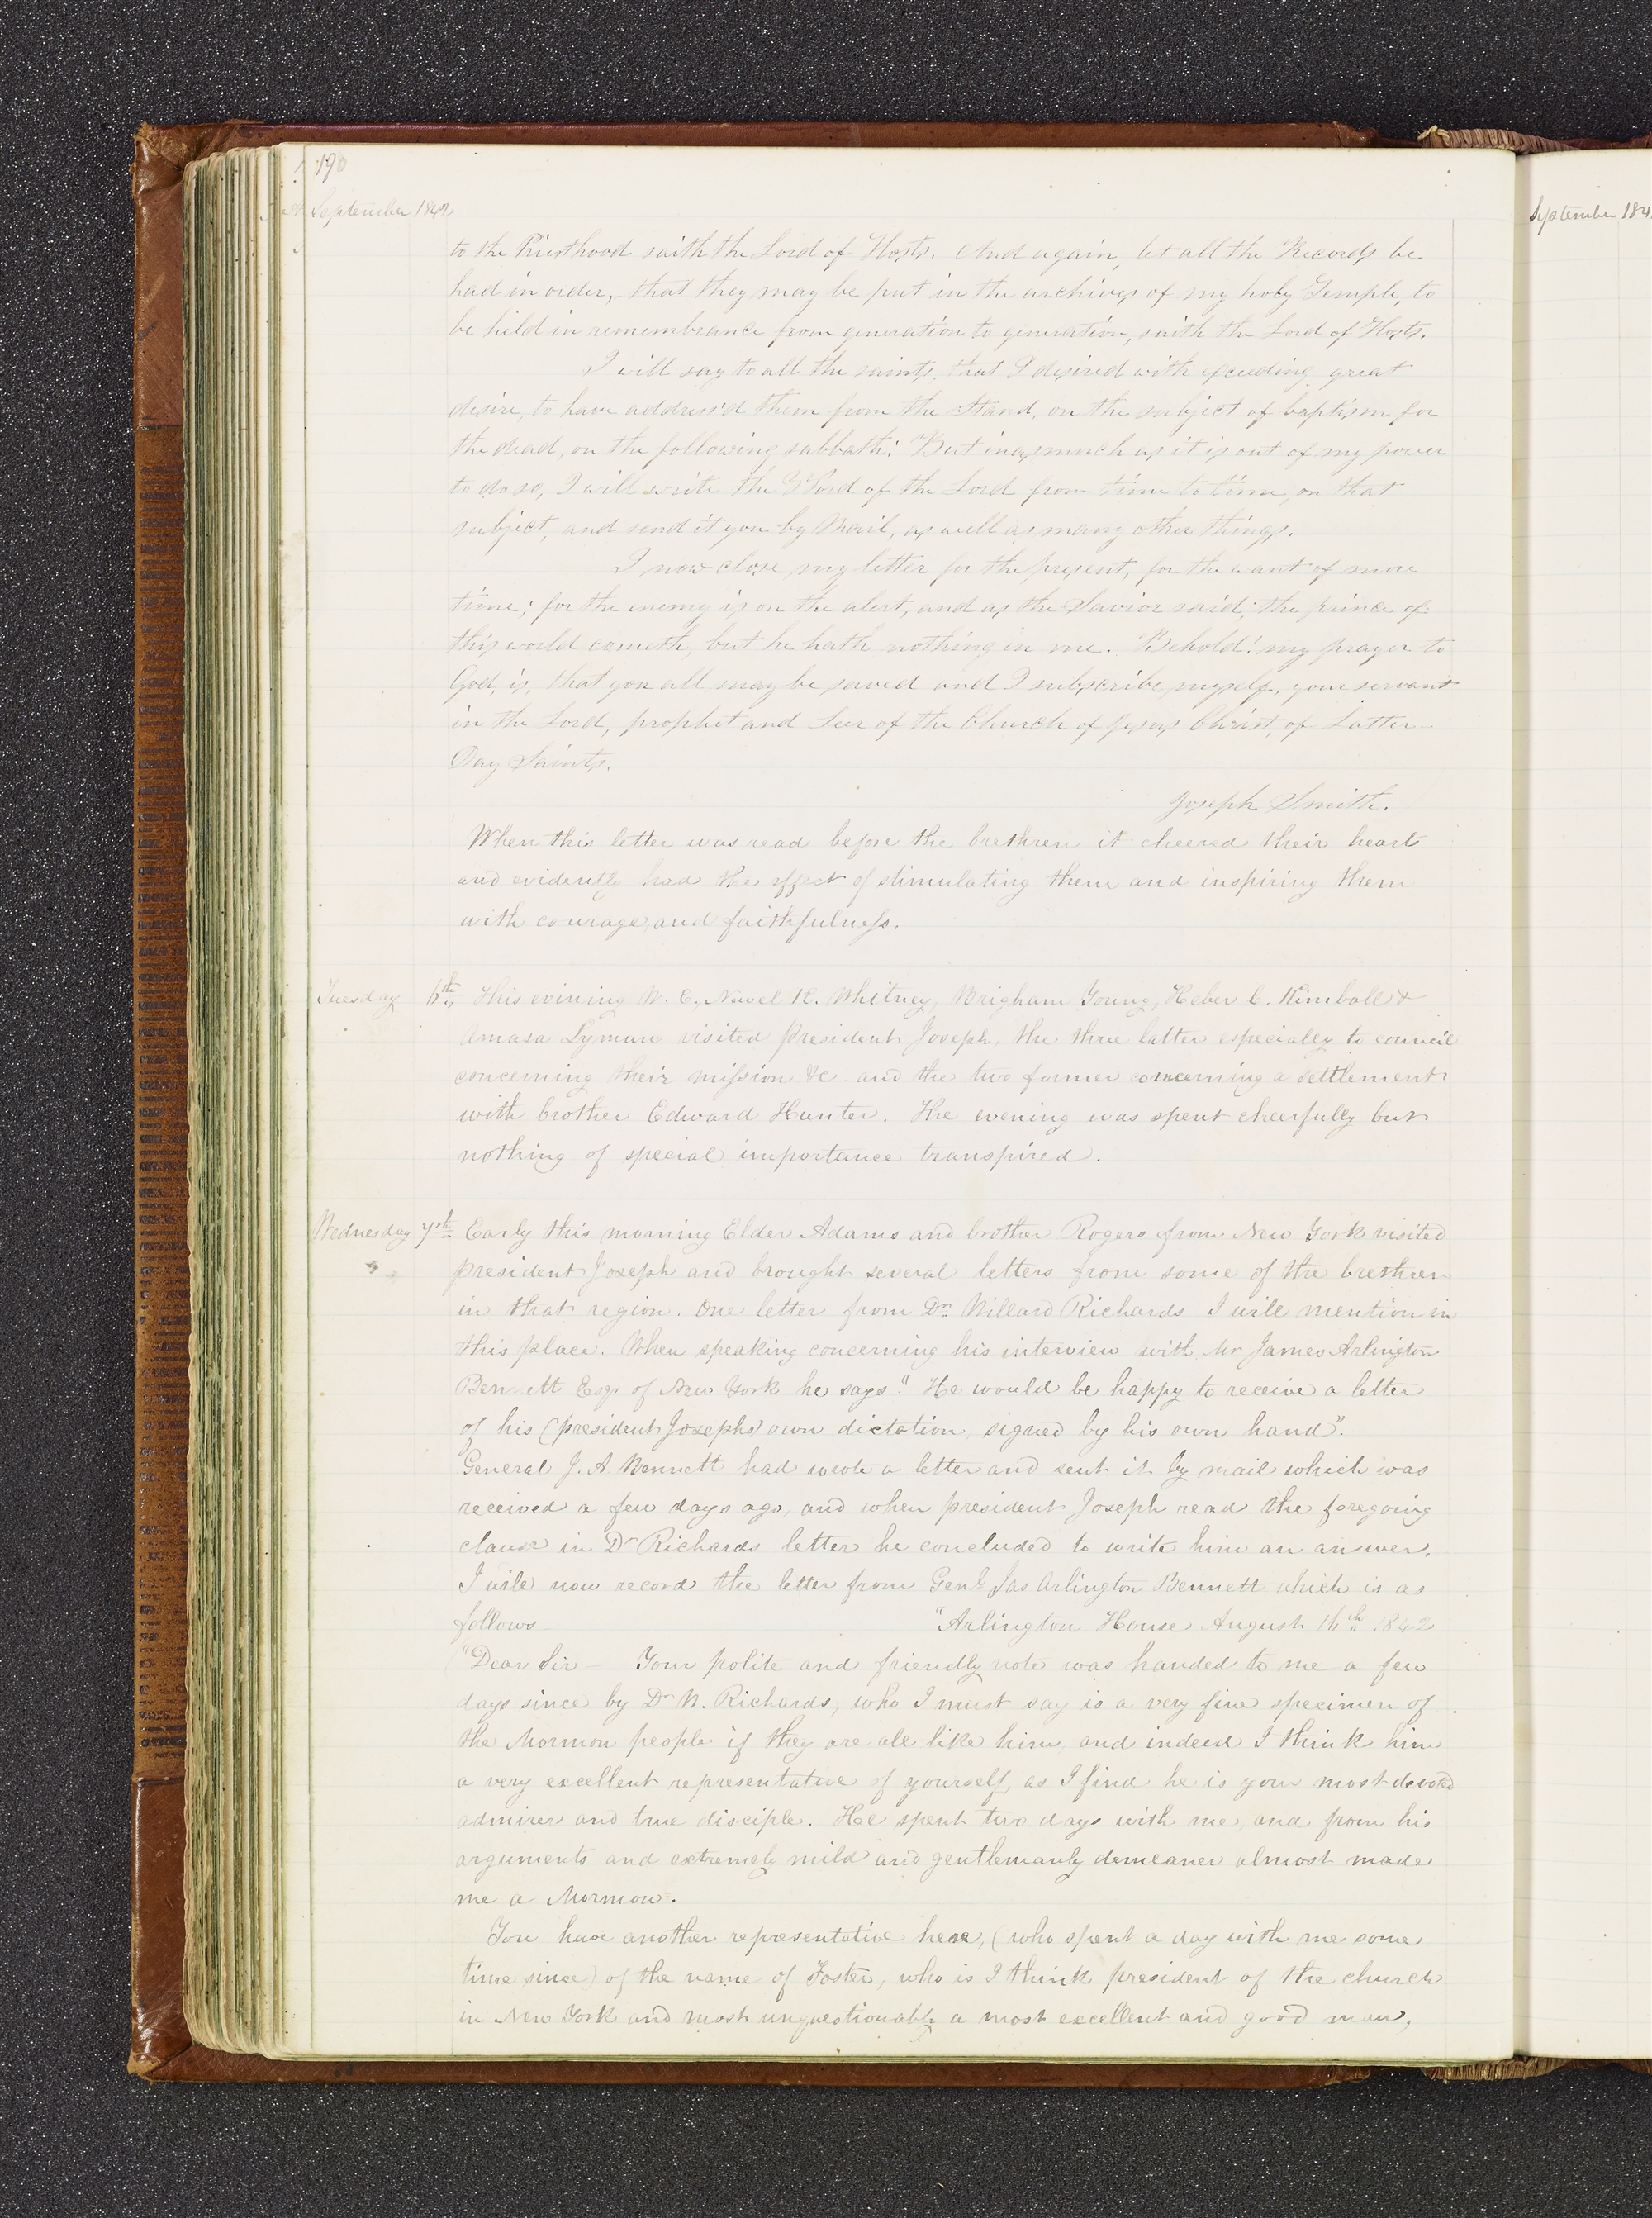 190
September 1842
September 184
to the Priesthood saith the Lord of Hosts. And again, let all the Records be
had in order, that they may be put in the archives of my holy Temple, to
be hild in remembrance from generation to generation, saith the Lord of Hosts.
I will say to all the saints, that I desired with exceeding great
desire, to have address'd them from the Stand, on the subject of baptism for
the dead, on the following sabbath: But inasmuch as it is out of my power
to do so, I will write the Word of the Lord from time to time, on that
subject, and send it you by Mail, as well as many other things.
I now close my letter for the present, for the want of more
time; for the enemy is on the alert, and as the Savior said; the prince of
this world cometh, but he hath nothing in me. Behold! my prayer to
God, is, that you all may be saved and I subscribe myself, your servant
in the Lord, prophet and Seer of the Church of Jesus Christ, of Latter
Day Saints.
Joseph Smith.
When this letter was read before the brethren it cheered their hearts
and evidently had the effect of stimulating them and inspiring them
with courage, and faithfulness.
Tuesday 6th This evining W. C. Newel K. Whitney, Brigham Young, Heber C. Kimball &
Amasa Lyman visited president Joseph, the three latter especially to council
concerning their mission &c and the two former concerning a settlement
with brother Edward Hunter. The evening was spent cheerfully but
nothing of special importance transpired.
Wednesday 7th Early this morning Elder Adams and brother Rogers from New York visited
president Joseph and brought several letters from some of the brethren
in that region. One letter from Dr. Willard Richards I will mention in
this place. When speaking concerning his interview with Mr James Arlington
Bennett Esqr of New York he says "He would be happy to receive a letter
of his (president Josephs) own dictation, signed by his own hand".
General J. A. Bennett had wrote a letter and sent it by mail which was
received a few days ago, and when president Joseph read the foregoing
clause in Dr Richards letter he concluded to write him an answer.
I will now record the letter from Genl Jas Arlington Bennett which is as
follows "Arlington House August 16th 1842
"Dear Sir— Your polite and friendly note was handed to me a few
days since by Dr W. Richards, who I must say is a very fine specimen of
the Mormon people if they are all like him, and indeed I think him
a very excellent representative of yourself, as I find he is your most devoted
admirer and true disciple. He spent two days with me, and from his
arguments and extremely mild and gentlemanly demeaner almost made
me a Mormon.
You have another representative here, (who spent a day with me some
time since) of the name of Foster, who is I think president of the church
in New York and most unquestionably a most excellent and good man,